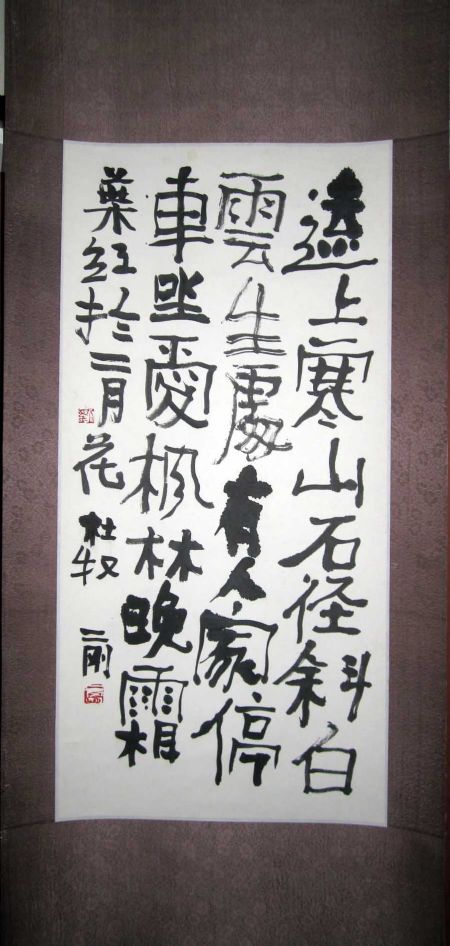 遠上寒山石径斜白
雲生處有人家停
車坐愛枫林晚霜
葉红於二月花
杜牧
二刚